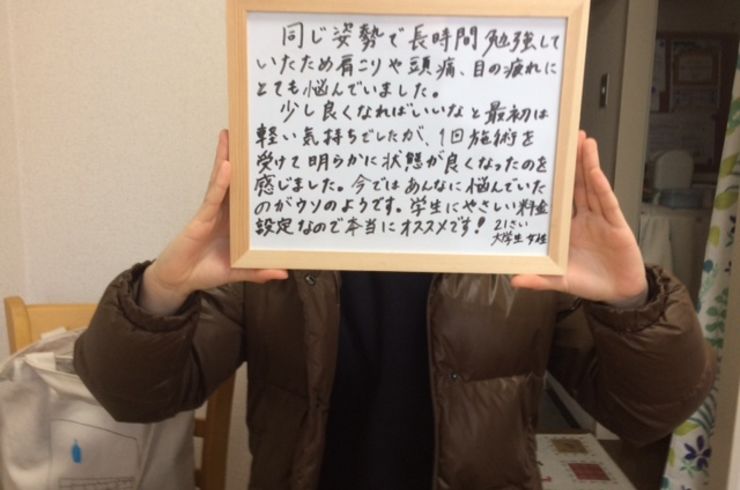 同じ姿勢で長時間勉強して
いたため肩こりや頭痛、目の疲れに
とても悩んでいました。
少し良くなればいいなと最初は
軽い気持ちでしたが、1回施術を
受けて明らかに状態が良くなったのを
感じました。今ではあんなに悩んでいた
のがウソのようです。学生にやさしい料金
設定なので本当にオススメです!
21さい
大学生 女性